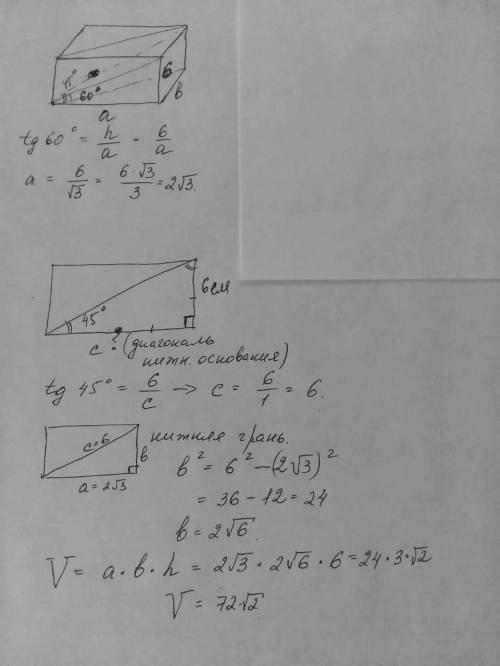 45°
60°
6
в
a
tg 60° = h/a = 6/a
a = 6/√3 = 6·√3/3 = 2√3.
6см
45°
c ? (диагональ
нижн. основания)
tg 45° = 6/c → c = 6/1 = 6.
c=6
в
a = 2√3
нижняя грань.
в² = 6² − (2√3)²
= 36 − 12 = 24
в = 2√6.
V = a · в · h = 2√3 · 2√6 · 6 = 24 · 3 · √2
V = 72·√2